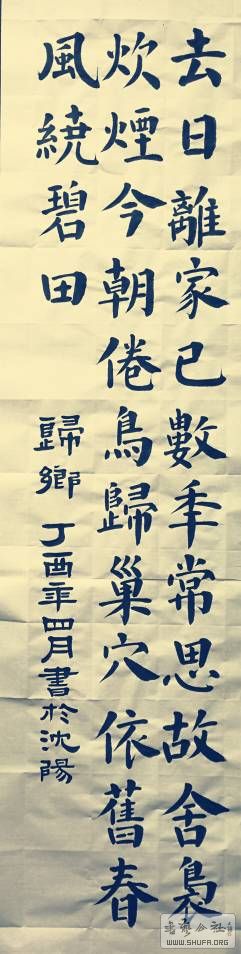 去日離家已數年常思故舍裊
炊煙今朝倦鳥歸巢穴依舊春
風繞碧田
歸鄉 丁酉年四月書於沈陽
WWW.SHUFA.ORG